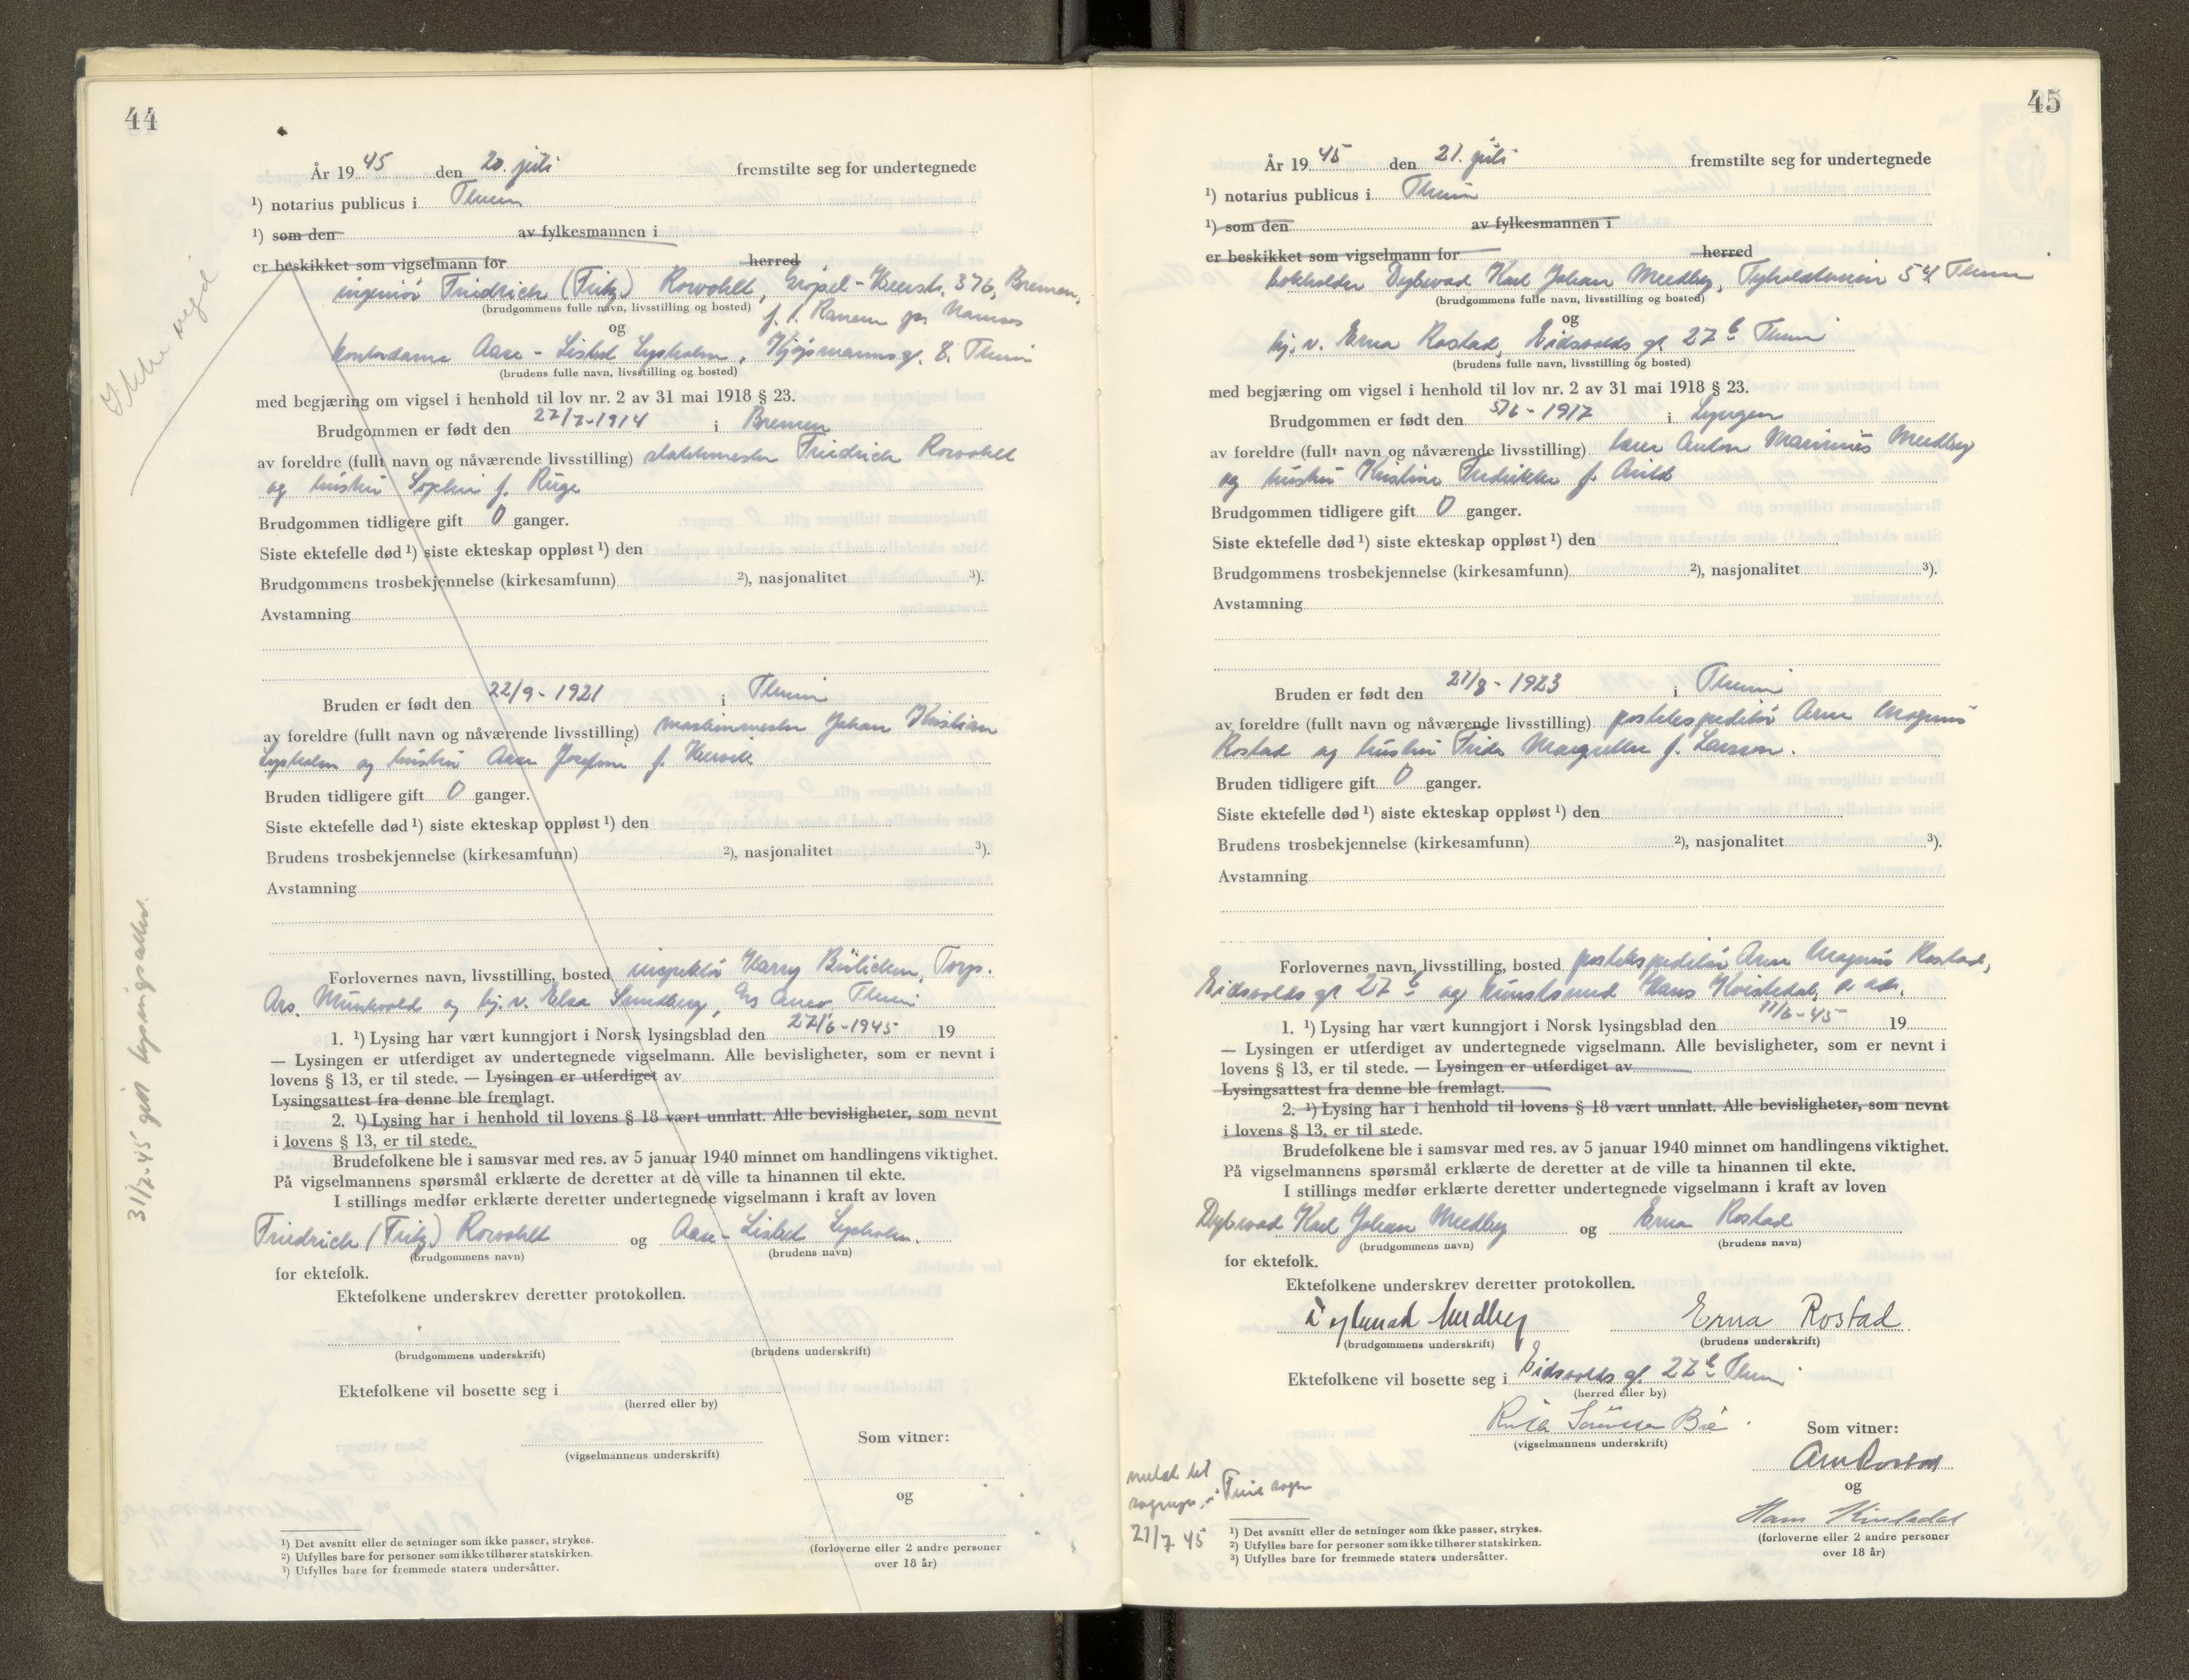 44
År 1945 den 20. juli fremstilte seg for undertegnede
¹) notarius publicus i Thrim
¹) som den av fylkesmannen i
er beskikket som vigselmann for herred
ingeniør Friedrich (Fritz) Rowohlt, 376, Bremen,
(brudgommens fulle navn, livsstilling og bosted) f. t. Ranem pr Namsos
og
kontordame Aase-Lisbet Lysholm, gt. 8. Thrim
(brudens fulle navn, livsstilling og bosted)
med begjæring om vigsel i henhold til lov nr. 2 av 31 mai 1918 § 23.
Brudgommen er født den 27/7-1914 i Bremen
av foreldre (fullt navn og nåværende livsstilling) Friedrich Rowohlt
og hustru Sophie f. Ruge
Brudgommen tidligere gift 0 ganger.
Siste ektefelle død ¹) siste ekteskap oppløst ¹) den
Brudgommens trosbekjennelse (kirkesamfunn) ²), nasjonalitet ³).
Avstamning
Bruden er født den 22/9-1921 i Thrim
av foreldre (fullt navn og nåværende livsstilling) maskinmester Johan Kristian
Lysholm og hustru Aase Josefine f.
Bruden tidligere gift 0 ganger.
Siste ektefelle død ¹) siste ekteskap oppløst ¹) den
Brudens trosbekjennelse (kirkesamfunn) ²), nasjonalitet ³).
Avstamning
Forlovernes navn, livsstilling, bosted inspektør Harry
Munkvold og hj.v. Elsa Sundberg, Thrim
1. ¹) Lysing har vært kunngjort i Norsk lysingsblad den 27/6-1945 19
— Lysingen er utferdiget av undertegnede vigselmann. Alle bevisligheter, som er nevnt i
lovens § 13, er til stede. — Lysingen er utferdiget av
Lysingsattest fra denne ble fremlagt.
2. ¹) Lysing har i henhold til lovens § 18 vært unnlatt. Alle bevisligheter, som nevnt
i lovens § 13, er til stede.
Brudefolkene ble i samsvar med res. av 5 januar 1940 minnet om handlingens viktighet.
På vigselmannens spørsmål erklærte de deretter at de ville ta hinannen til ekte.
I stillings medfør erklærte deretter undertegnede vigselmann i kraft av loven
Friedrich (Fritz) Rowohlt og Aase-Lisbet Lysholm.
(brudgommens navn) (brudens navn)
for ektefolk.
Ektefolkene underskrev deretter protokollen.
(brudgommens underskrift) (brudens underskrift)
Ektefolkene vil bosette seg i
(herred eller by)
Som vitner:
(vigselmannens underskrift)
og
(forloverne eller 2 andre personer
over 18 år)
¹) Det avsnitt eller de setninger som ikke passer, strykes.
²) Utfylles bare for personer som ikke tilhører statskirken.
³) Utfylles bare for fremmede staters undersåtter.
Ikke vigd
31/7-45 gitt lysingsattest.
45
År 1945 den 21. juli fremstilte seg for undertegnede
¹) notarius publicus i Thrim
¹) som den av fylkesmannen i
er beskikket som vigselmann for herred
bokholder Dybwad Karl Johan Medby, Tyholdtveien 54 Thrim
(brudgommens fulle navn, livsstilling og bosted)
og
hj. v. Erna Rostad, Eidsvolds gt 27 b Thrim
(brudens fulle navn, livsstilling og bosted)
med begjæring om vigsel i henhold til lov nr. 2 av 31 mai 1918 § 23.
Brudgommen er født den 5/6-1917 i Lyngen
av foreldre (fullt navn og nåværende livsstilling) lærer Anton Marinius Medby
og hustru Kristine Fredrikke f.
Brudgommen tidligere gift 0 ganger.
Siste ektefelle død ¹) siste ekteskap oppløst ¹) den
Brudgommens trosbekjennelse (kirkesamfunn) ²), nasjonalitet ³).
Avstamning
Bruden er født den 21/8-1923 i Thrim
av foreldre (fullt navn og nåværende livsstilling) postekspeditør Arne Magnus
Rostad og hustru Frida Margrethe f. Larsson.
Bruden tidligere gift 0 ganger.
Siste ektefelle død ¹) siste ekteskap oppløst ¹) den
Brudens trosbekjennelse (kirkesamfunn) ²), nasjonalitet ³).
Avstamning
Forlovernes navn, livsstilling, bosted postekspeditør Arne Magnus Rostad,
Eidsvolds gt 27 b og kunstsmed Hans Kvistedal, s. adr.
1. ¹) Lysing har vært kunngjort i Norsk lysingsblad den /6-45 19
— Lysingen er utferdiget av undertegnede vigselmann. Alle bevisligheter, som er nevnt i
lovens § 13, er til stede. — Lysingen er utferdiget av
Lysingsattest fra denne ble fremlagt.
2. ¹) Lysing har i henhold til lovens § 18 vært unnlatt. Alle bevisligheter, som nevnt
i lovens § 13, er til stede.
Brudefolkene ble i samsvar med res. av 5 januar 1940 minnet om handlingens viktighet.
På vigselmannens spørsmål erklærte de deretter at de ville ta hinannen til ekte.
I stillings medfør erklærte deretter undertegnede vigselmann i kraft av loven
Dybwad Karl Johan Medby og Erna Rostad
(brudgommens navn) (brudens navn)
for ektefolk.
Ektefolkene underskrev deretter protokollen.
Dybwad Medby Erna Rostad
(brudgommens underskrift) (brudens underskrift)
Ektefolkene vil bosette seg i Eidsvolds gt. 27 b Thrim
(herred eller by)
Som vitner:
(vigselmannens underskrift)
Arne Rostad
og
Hans Kvistedal
(forloverne eller 2 andre personer
over 18 år)
meldt til
sognepr. i sogn
21/7 45
¹) Det avsnitt eller de setninger som ikke passer, strykes.
²) Utfylles bare for personer som ikke tilhører statskirken.
³) Utfylles bare for fremmede staters undersåtter.